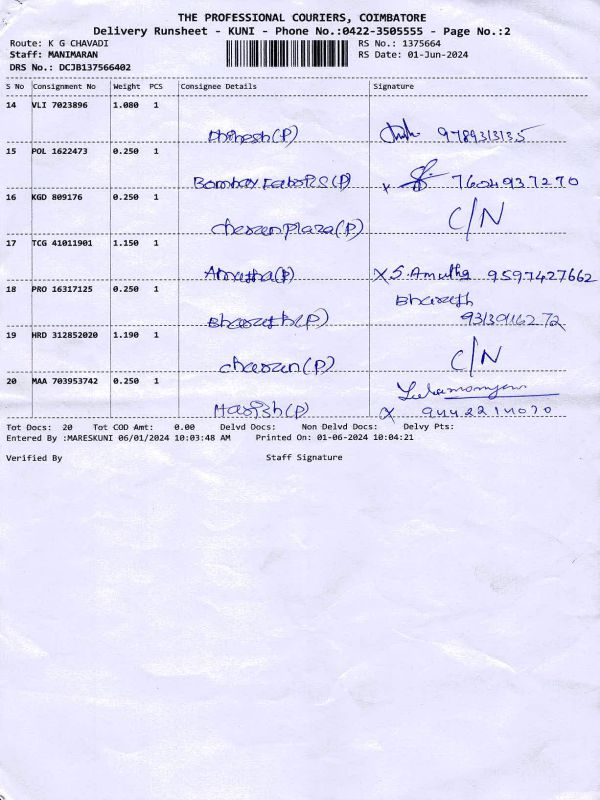 THE PROFESSIONAL COURIERS, COIMBATORE
Delivery Runsheet - KUNI - Phone No.:0422-3505555 - Page No.:2
Route: K G CHAVADI RS No.: 1375664
Staff: MANIMARAN RS Date: 01-Jun-2024
DRS No.: DCJB137566402
S No Consignment No Weight PCS Consignee Details Signature
14 VLI 7023896 1.080 1
(P) 9789313135
15 POL 1622473 0.250 1
Bombay (P) x 7604937270
16 KGD 809176 0.250 1 C/N
charan plaza(P)
17 TCG 41011901 1.150 1
Amutha(P) X S. Amutha 9597427662
18 PRO 16317125 0.250 1 Bharath
Bharath(P) 9313916272
19 HRD 312852020 1.190 1 C/N
charan(P)
20 MAA 703953742 0.250 1
Harish(P) x 9442214070
Tot Docs: 20 Tot COD Amt: 0.00 Delvd Docs: Non Delvd Docs: Delvy Pts:
Entered By :MARESKUNI 06/01/2024 10:03:48 AM Printed On: 01-06-2024 10:04:21
Verified By Staff Signature